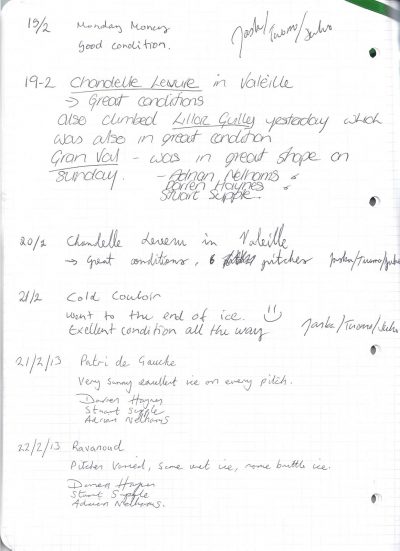 19/2 Monday Money
Good condition.
19-2 Chandelle Levure in Valéille
→ Great conditions
also climbed Lillaz Gulley yesterday which
was also in great condition
Gran Val - was in great shape on
sunday. - Adrian Nelhams
Darren Haynes
Stuart Supple.
20/2 Chandelle Levern in Valeille
→ Great conditions, 6 pitches
21/2 Cold Couloir
went to the end of ice. :)
Excellent condition all the way
21/2/13 Patri de Gauche
Very sunny excellent ice on every pitch.
Darren Haynes
Stuart Supple
Adrian Nelhams
22/2/13 Ravanoud
Pitches varied, some wet ice, some brittle ice.
Darren Haynes
Stuart Supple
Adrian Nelhams.